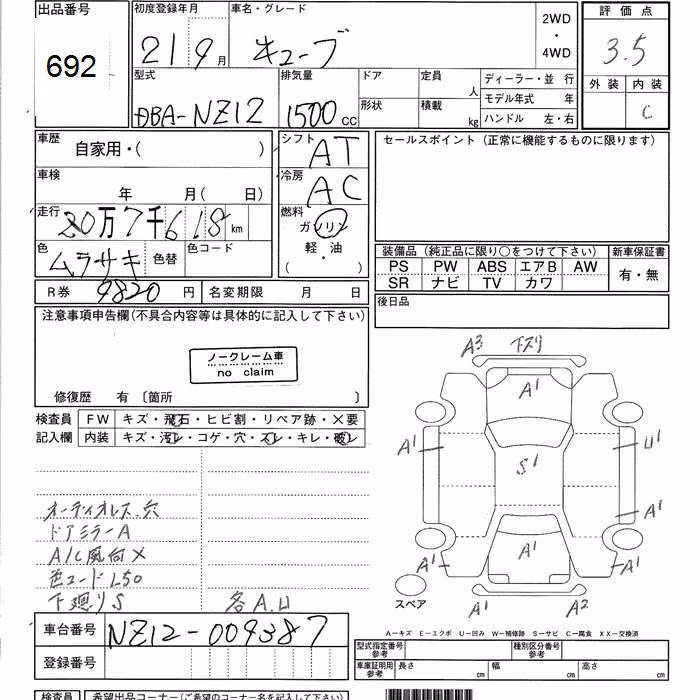 出品番号 初度登録年月 車名・グレード 2WD 評価点
692 21 9月 キューブ ・ 4WD 3.5
型式 排気量 ドア 定員 人 ディーラー・並 行 外装 内装
DBA-NZ12 1500cc 形状 積載 kg モデル年式 年 C
ハンドル 左・右
車歴 自家用・( ) シフト AT セールスポイント(正常に機能するものに限ります)
車検 年 月(日) 冷房 AC
走行 20万7千618km 燃料 ガソリン
色 ムラサキ 色替 色コード 軽・油 ( )
装備品(純正品に限り○をつけて下さい) 新車保証書
PS PW ABS エアB AW 有・無
SR ナビ TV カワ
R券 9820円 名変期限 月 日 後日品
注意事項申告欄(不具合内容等は具体的に記入して下さい)
ノークレーム車
no claim
修復歴 有〔箇所 〕
検査員 FW キズ・飛石・ヒビ割・リペア跡・×要
記入欄 内装 キズ・汚レ・コゲ・穴・スレ・キレ・破レ
A3 下スリ
A1
A1 U1
S1
A1
A1
A1 A1
スペア A1 A2
オーディオレス.穴
ドアミラーA
A/C風向×
色コードL50
下廻りS 各A.U
A-キズ E-エクボ U-凹み W-補修跡 S-サビ C-腐食 XX-交換済
車台番号 NZ12-009387
登録番号
型式指定番号 参考 種別区分番号 参考
車庫証明用 参考 長さ cm 幅 cm 高さ cm
検査員 希望出品コーナー(ご希望のコーナー名を記入して下さい)